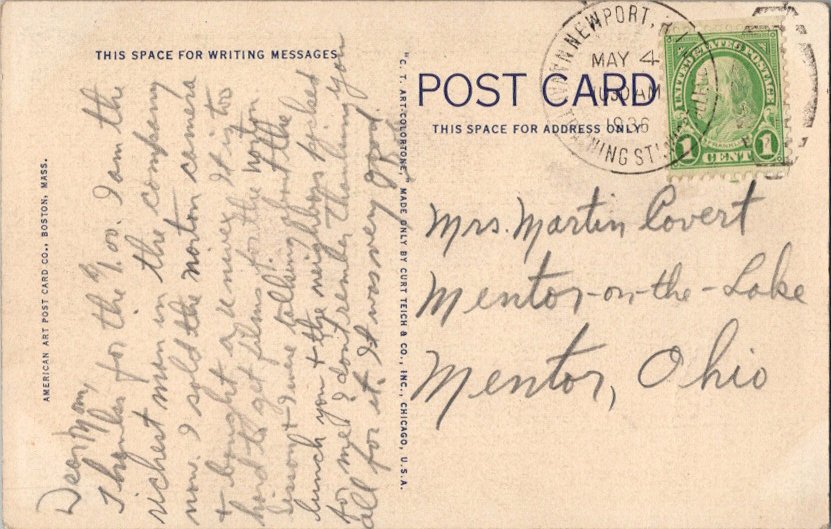 THIS SPACE FOR WRITING MESSAGES
POST CARD
THIS SPACE FOR ADDRESS ONLY
NEWPORT, R.I.
MAY 4
AM
1936
UNITED STATES POSTAGE
FRANKLIN
1 CENT 1
Mrs. Martin Covert
Mentor-on-the-Lake
Mentor, Ohio
Dear Mom,
Thanks for the I am the
richest man in the company
now. I sold the norton camera
& bought a univex. It is too
hard to get films for the norton.
& I were talking about the
lunch you & the neighbors
for me. I dont rember thanking you
all for it. It was very good.
AMERICAN ART POST CARD CO., BOSTON, MASS.
"C. T. ART-COLORTONE," MADE ONLY BY CURT TEICH & CO., INC., CHICAGO, U.S.A.